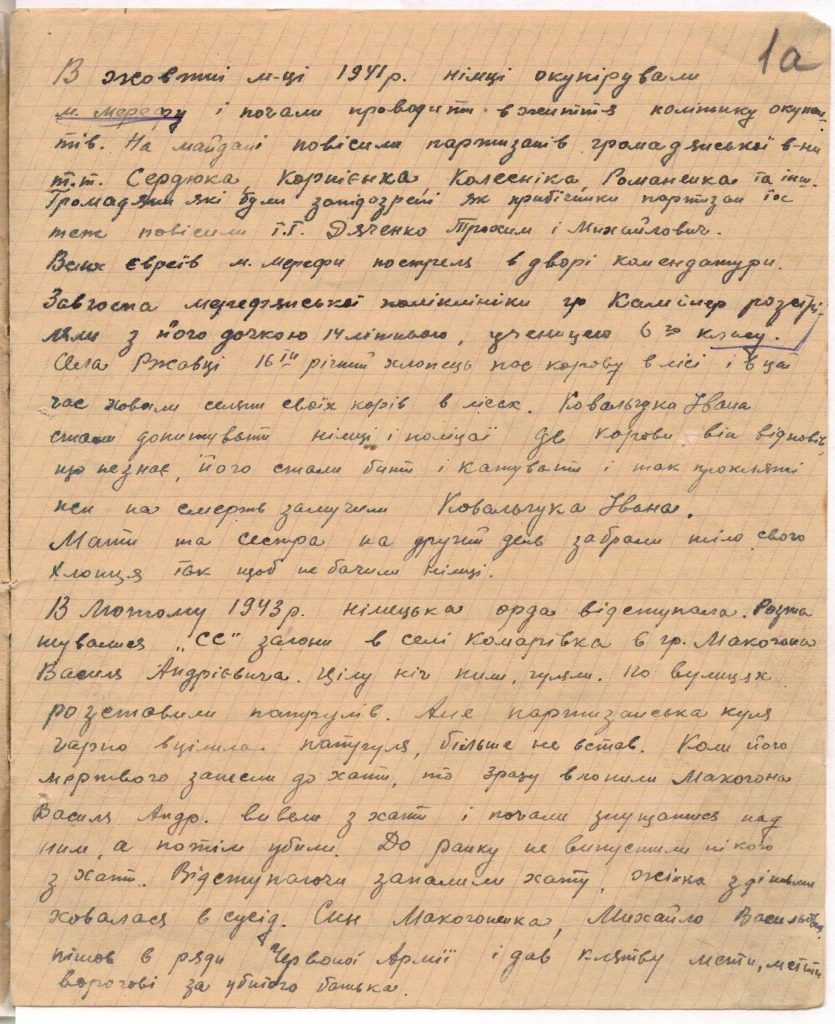 1а
В жовтні м-ці 1941 р. німці окупірували
м. мерефу і почали проводити в життя політику окупан-
тів. На майдані повісили партизанів громадянської в-ни
т.т. Сердюка, Корнієнка, Колесніка, Романенка та інш.
Громадяни які були запідозрені як прибічники партизан їх
теж повісили г.г. Дяченко Трохим і Михайлович.
Всих євреїв м. мерефи постреля в дворі комендатури.
Завгоспа мерефянської поліклініки гр. Камінер розстрі-
ляли з його дочкою 14 літньою, ученицею 6го класу.
Села Ржавці 16ти річний хлопець пас корову в лісі і в цей
час ховали селяни своїх корів в лісєх. Ковальчука Івана
стали допитувати німці і поліцаї де корови, він відповів,
що не знає, його стали бити і катувати і так прокляті
пси на смерть замучили Ковальчука Івана.
Мати та сестра на другий день забрали тіло свого
хлопця так щоб не бачили німці.
В Лютому 1943 р. німецька орда відступала. Розта
шувалися „СС" загони в селі Комарівка в гр. Макогона
Василя Андрієвича. Цілу ніч пили, гуляли. по вулицях
розставили патрулів. Але партизанська куля
гарно вцілила патруля, більше не встав. Коли його
мертвого занесли до хати, то зразу вхопили Макогона
Василя Андр. вивели з хати і почали знущатися над
ним, а потім убили. До ранку не випустили нікого
з хати. Відступаючи запалили хату, жінка з дітьми
ховалася в сусід. Син Макогоненка, Михайло Васильович
пішов в ряди Червоної Армії і дав клятву мсти, мстити
ворогові за убитого батька.